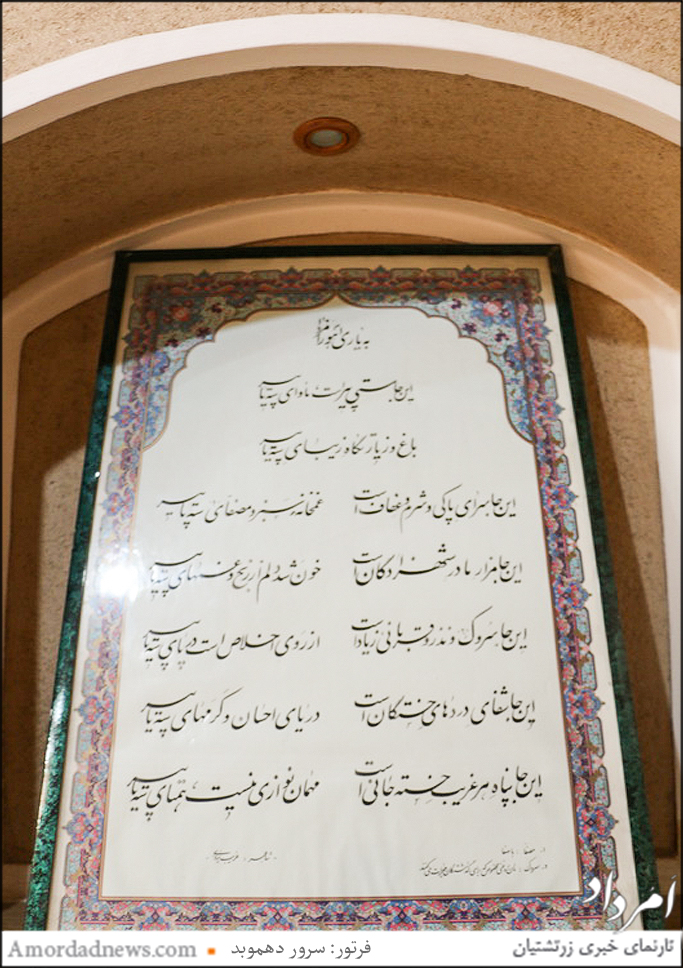 به یاری اهورامزدا
این جا ستی پیر است ماوای ستی پیر
باغ و زیارتگاه زیبای ستی پیر
این جا سرای پاکی و شرم و عفاف است غمخانه سبز و مصفای ستی پیر
این جا مزار مادر شهزادگان است خون شد دلم از رنج و غمهای ستی پیر
این جا سروک و نذر و قربانی زیاد است از روی اخلاص است در پای ستی پیر
این جا شفای دردهای خستگان است دریای احسان و کرمهای ستی پیر
این جا پناه هر غریب خسته جانی است مهمان نوازی نیست همتای ستی پیر
امرداد
Amordadnews.com ▪ فرتور: سرور دهموبد تارنمای خبری زرتشتیان